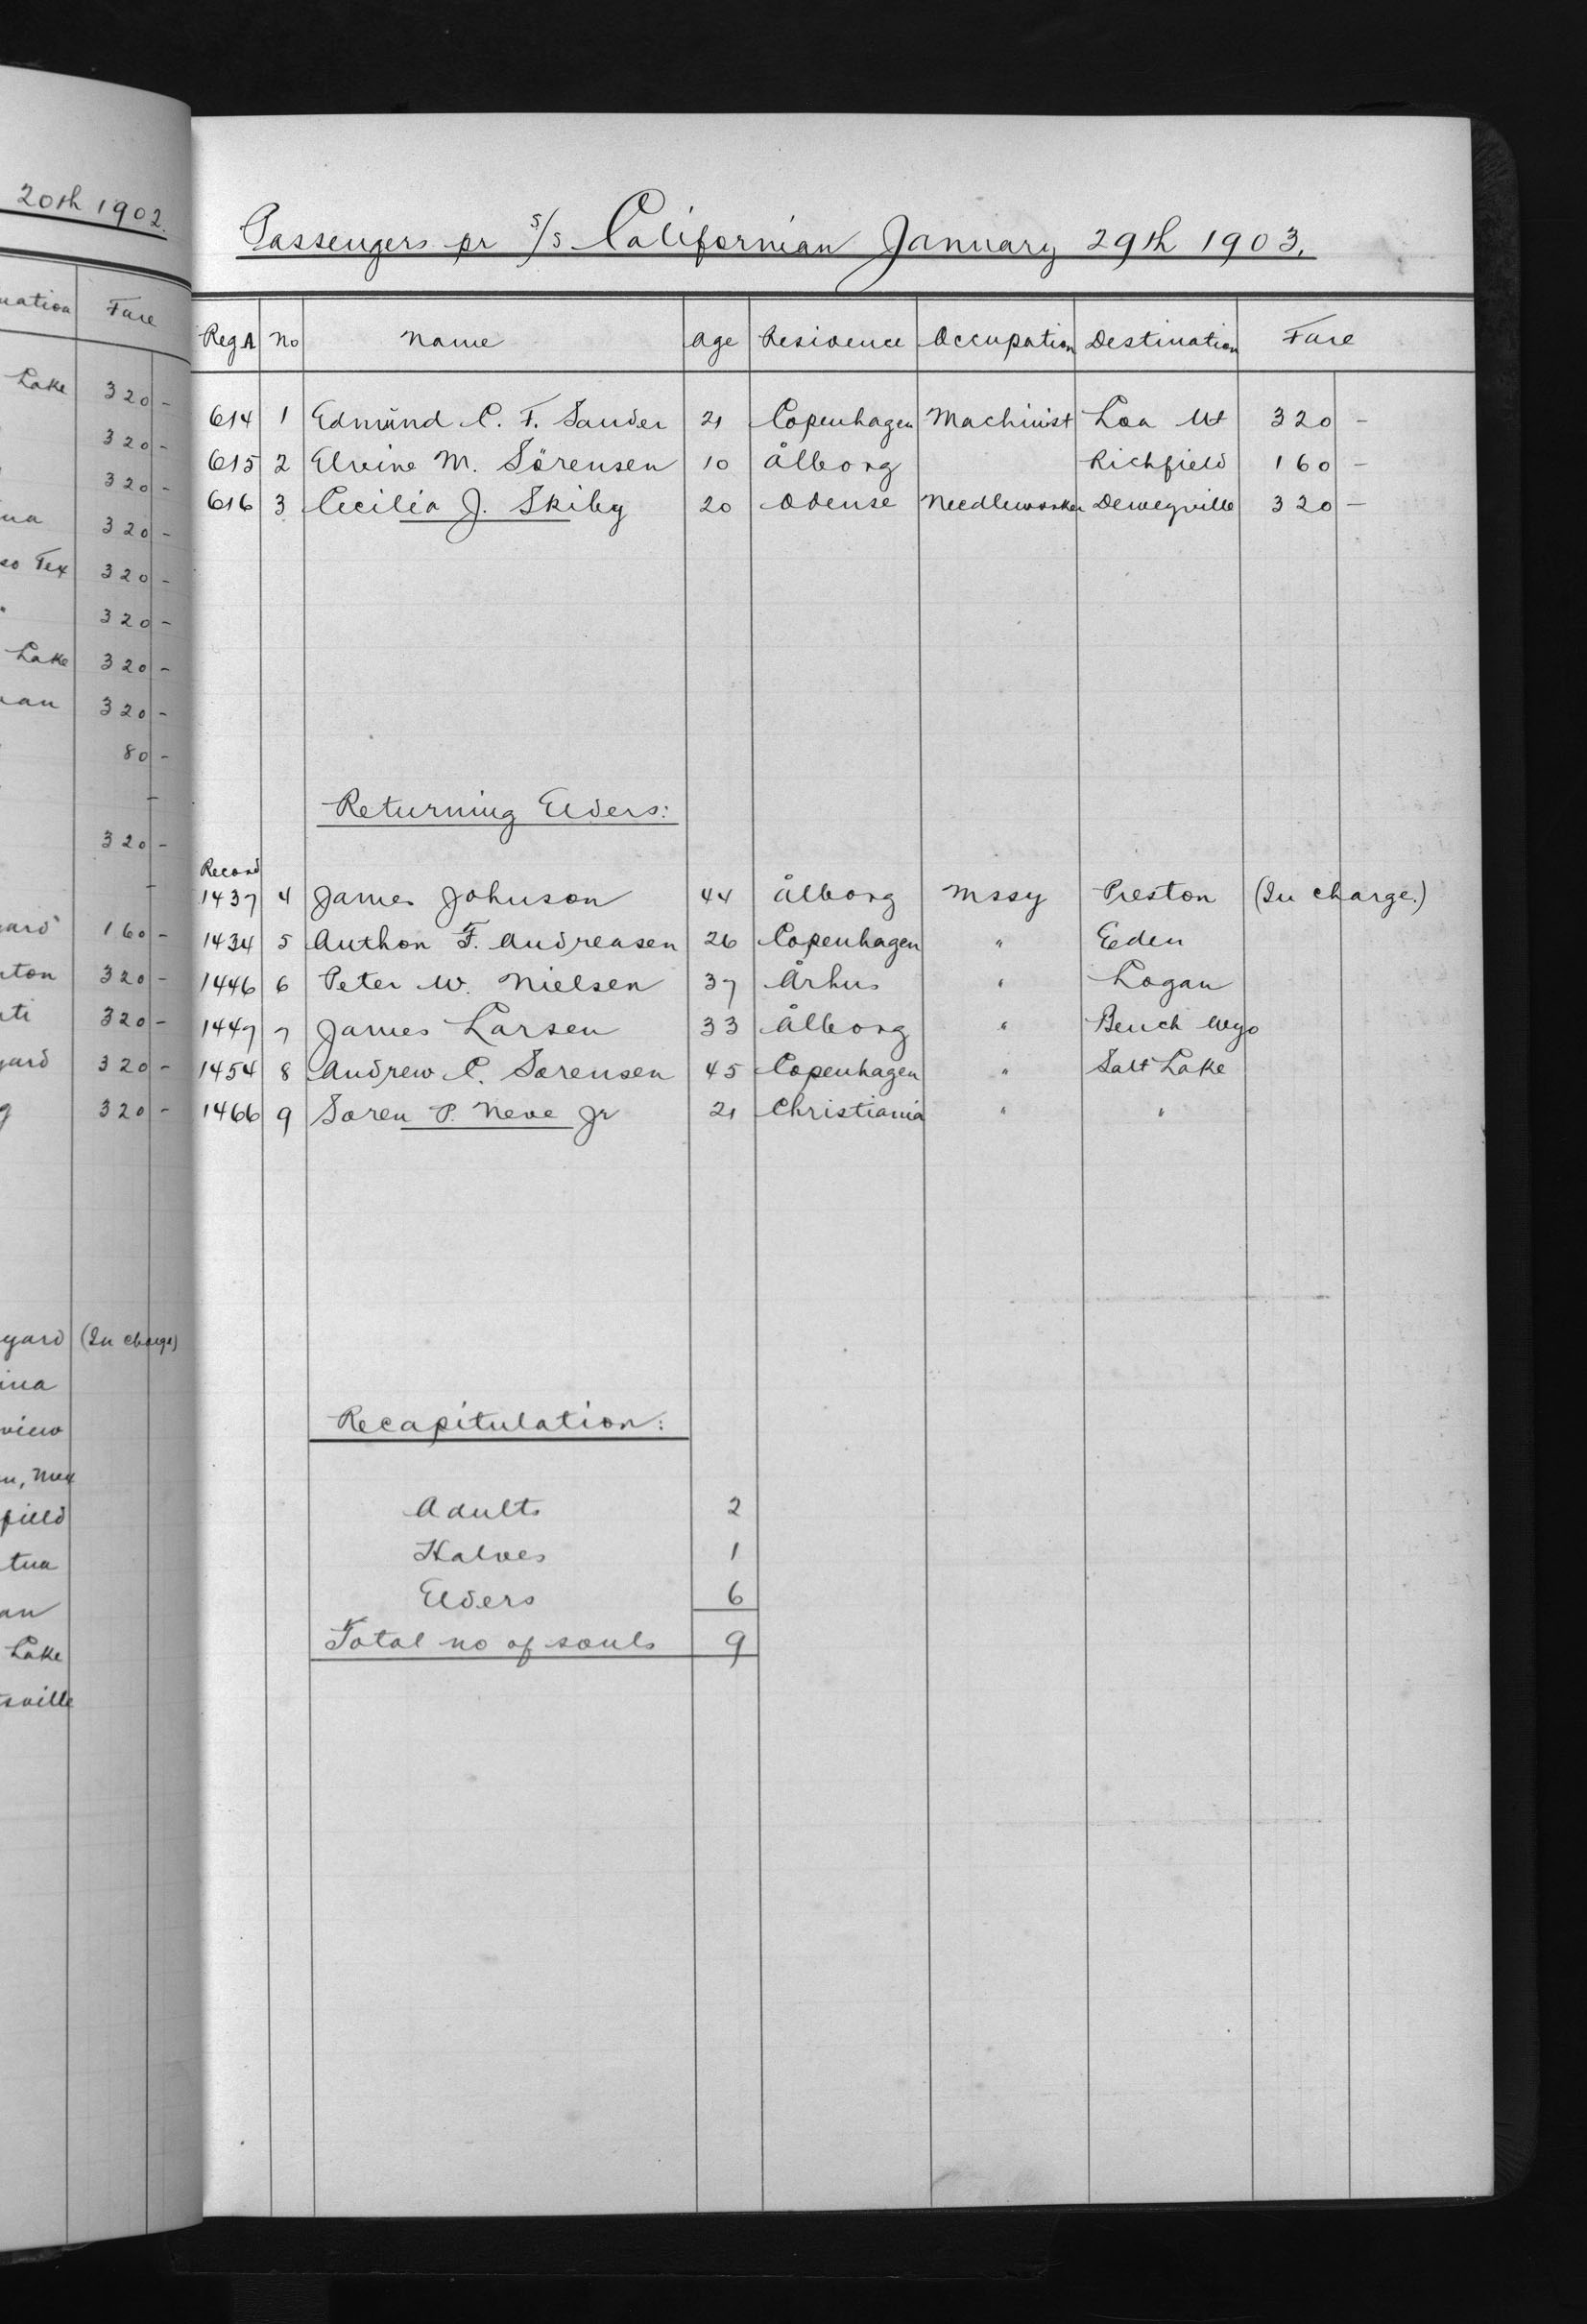 20th 1902.
nation Fare
Lake 320 -
320 -
320 -
na 320 -
so Tex 320 -
320 -
Lake 320 -
an 320 -
80 -
-
320 -
-
yard 160 -
ton 320 -
ti 320 -
yard 320 -
g 320 -
yard (In charge)
ina
view
n, Mex
field
tua
an
Lake
sville
Passengers pr s/s Californian January 29th 1903.
Reg A No Name Age Residence Occupation Destination Fare
614 1 Edmund C. F. Sander 21 Copenhagen Machinist Loa Ut 320 -
615 2 Elvine M. Sörensen 10 Ålborg Richfield 160 -
616 3 Cecilia J. Skiby 20 Odense Needleworker Deweyville 320 -
Returning Elders:
Record
1437 4 James Johnson 44 Ålborg Mssy Preston (In charge.)
1434 5 Anthon F. Andreasen 26 Copenhagen " Eden
1446 6 Peter W. Nielsen 37 Århus " Logan
1447 7 James Larsen 33 Ålborg " Bench Wyo
1454 8 Andrew C. Sorensen 45 Copenhagen " Salt Lake
1466 9 Soren P. Neve Jr 21 Christiania " "
Recapitulation:
Adults 2
Halves 1
Elders 6
Total no of souls 9